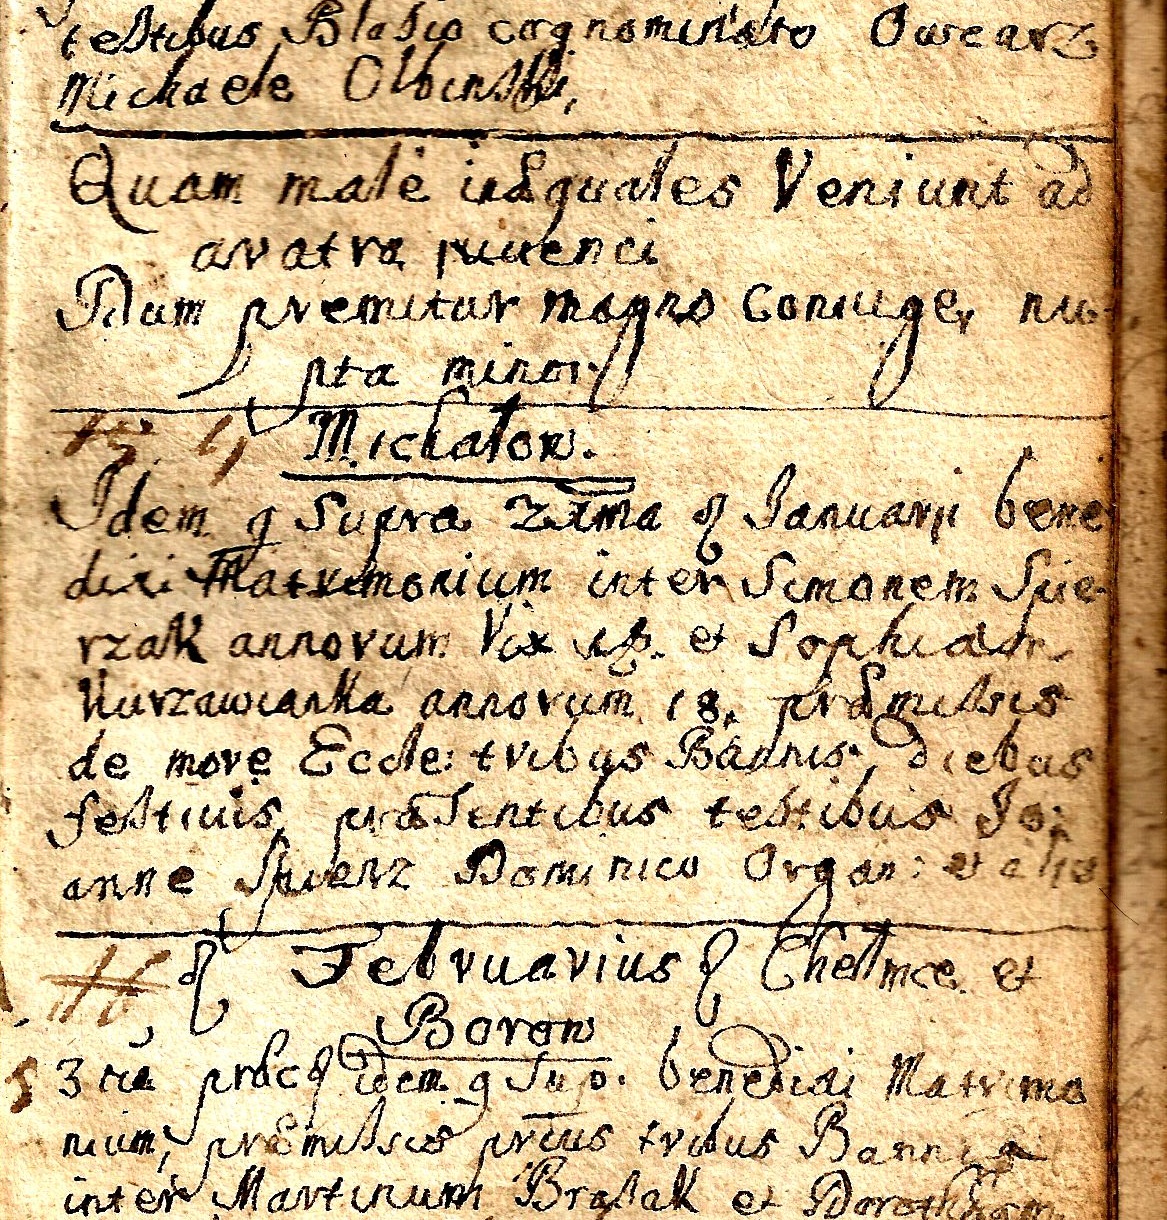 testibus Blasio cognominato Owcarz
Michaele Olbinski,
Quam male inæquales Veniunt ad
aratra juuenci
Tam premitur magno Coniuge, nu-
pta minor
15 4 Michałow.
Idem q Supra 21ma Januarij bene
dixi Matrimonium inter Simonem Spie-
rzak annorum et Sophiam
Kurzawianka annorum 18. præmissis
de more Eccle: tribus Bannis, diebus
festiuis, præsentibus testibus Jo:
anne Dominico Organ: et alijs
16 Februarius Chełmce et
Borow
5 3tia idem q Sup. benedixi Matrimo
nium, præmissis prius tribus Bannis
inter Martinum Brasak et Dorotheam